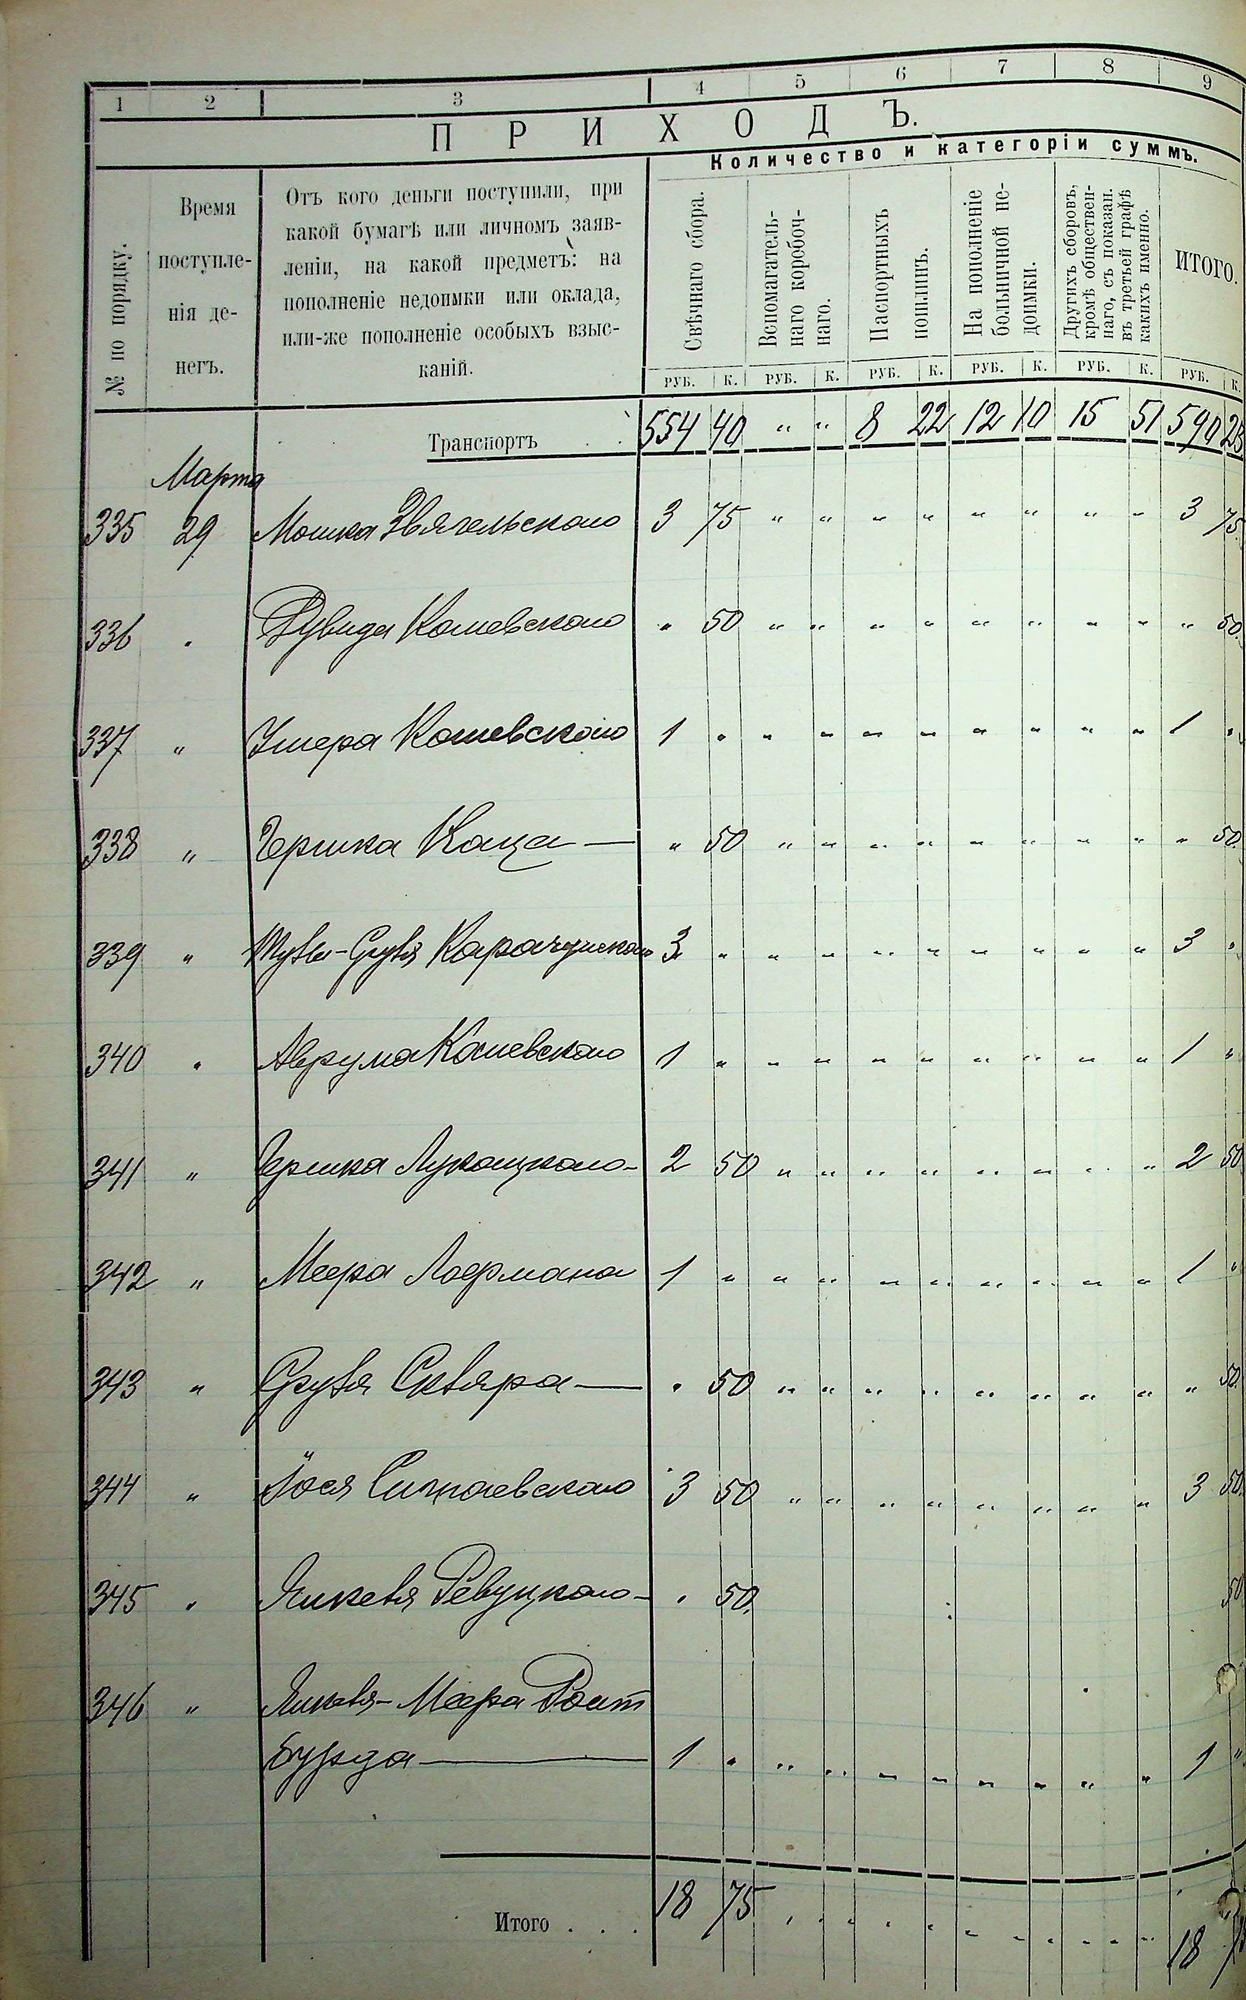 1 2 3 4 5 6 7 8 9
ПРИХОДЪ.
Количество и категоріи суммъ.
№ по порядку.
Время
поступле-
нія де-
негъ.
Отъ кого деньги поступили, при
какой бумагѣ или личномъ заяв-
леніи, на какой предметъ: на
пополненіе недоимки или оклада,
или-же пополненіе особыхъ взыс-
каній.
Свѣчнаго сбора.
Вспомагатель-
наго коробоч-
наго.
Паспортныхъ
пошлинъ.
На пополненіе
больничной не-
доимки.
Другихъ сборовъ,
кромѣ обществен-
наго, съ показан.
въ третьей графѣ
какихъ именно.
ИТОГО.
РУБ. К. РУБ. К. РУБ. К. РУБ. К. РУБ. К. РУБ. К.
Транспортъ . . 554 40 " " 8 22 12 10 15 51 590 23
Марта
335 29 Мошка Звягельскаго 3 75 " " " " " " " " 3 75
336 " Дувида Кошевскаго " 50 " " " " " " " " " 50
337 " Ушера Кошевскаго 1 " " " " " " " " " 1 "
338 " Гершка Каца — " 50 " " " " " " " " " 50
339 " 3 " " " " " " " " " 3 "
340 " Аврума Кошевскаго 1 " " " " " " " " " 1 "
341 " Гершка 2 50 " " " " " " " " 2 50
342 " Меера 1 " " " " " " " " " 1 "
343 " Сруля Скляра — " 50 " " " " " " " " " 50
344 " Іося 3 50 " " " " " " " " 3 50
345 " Янкеля Ревуцкаго — " 50. 50
346 " Янкеля-Меера Ройт
бурда — 1 " " " " " " " " " 1 "
Итого . . . 18 75 " " " " " " " " 18 75